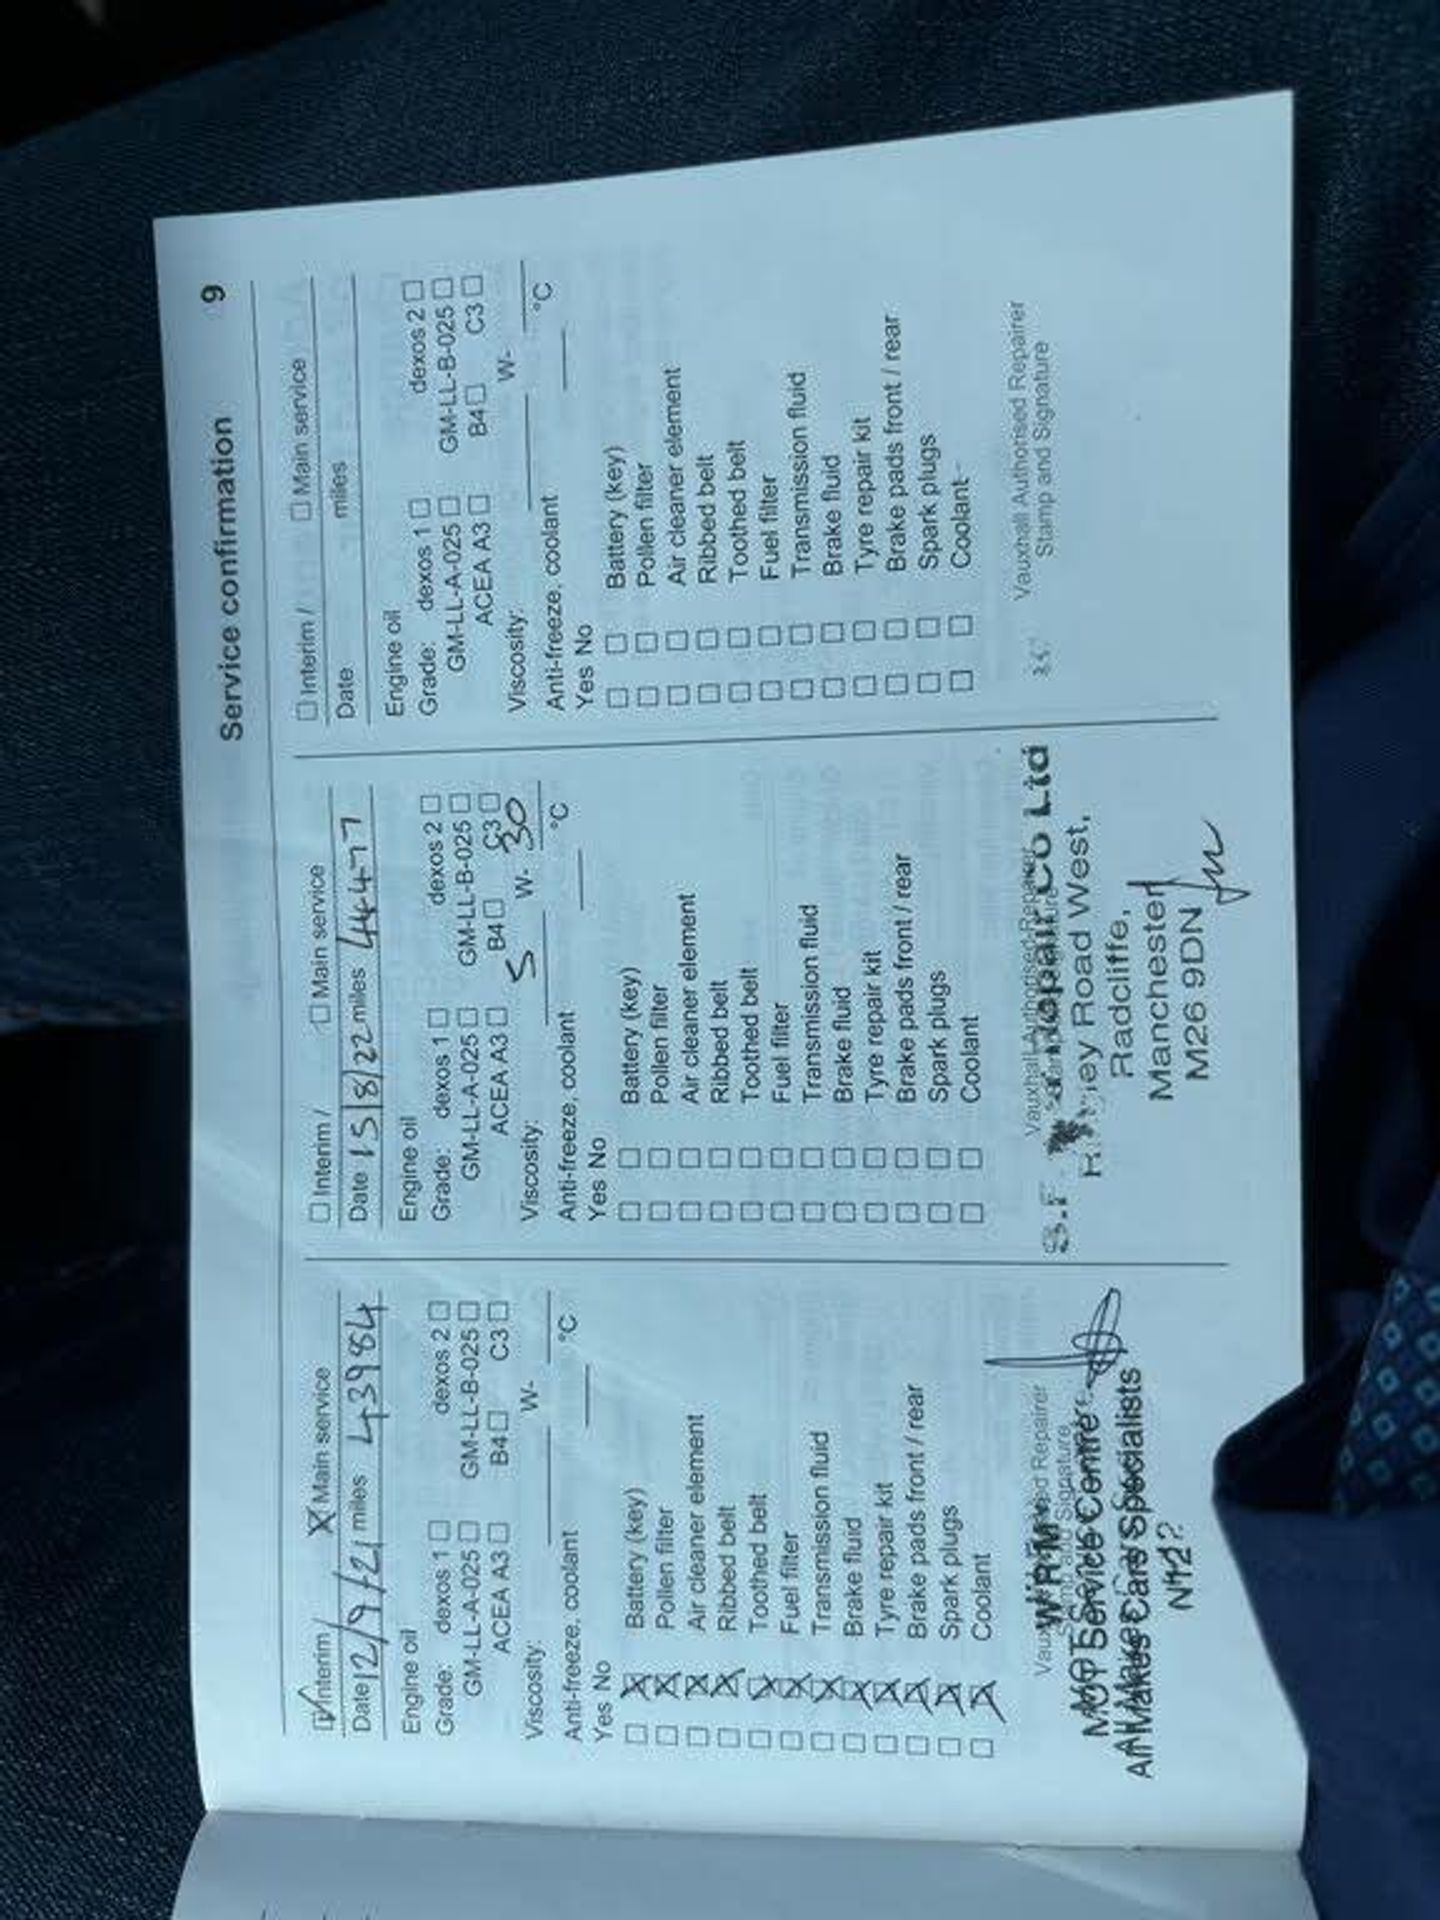 Service confirmation 9
Interim / Main service
Date 12/9/21 miles 43984
Engine oil
Grade: dexos 1 dexos 2
GM-LL-A-025 GM-LL-B-025
ACEA A3 B4 C3
Viscosity: W-
Anti-freeze, coolant °C
Yes No
Battery (key)
Pollen filter
Air cleaner element
Ribbed belt
Toothed belt
Fuel filter
Transmission fluid
Brake fluid
Tyre repair kit
Brake pads front / rear
Spark plugs
Coolant
Repairer
and Signature
W R M
MOT Service Centre
All Makes Cars Specialists
Interim / Main service
Date 15/8/22 miles 44477
Engine oil
Grade: dexos 1 dexos 2
GM-LL-A-025 GM-LL-B-025
ACEA A3 B4 C3
Viscosity: 5 W- 30
Anti-freeze, coolant °C
Yes No
Battery (key)
Pollen filter
Air cleaner element
Ribbed belt
Toothed belt
Fuel filter
Transmission fluid
Brake fluid
Tyre repair kit
Brake pads front / rear
Spark plugs
Coolant
Vauxhall Authorised Repairer
Repair Co Ltd
Road West,
Radcliffe,
Manchester
M26 9DN
Interim / Main service
Date miles
Engine oil
Grade: dexos 1 dexos 2
GM-LL-A-025 GM-LL-B-025
ACEA A3 B4 C3
Viscosity: W-
Anti-freeze, coolant °C
Yes No
Battery (key)
Pollen filter
Air cleaner element
Ribbed belt
Toothed belt
Fuel filter
Transmission fluid
Brake fluid
Tyre repair kit
Brake pads front / rear
Spark plugs
Coolant
Vauxhall Authorised Repairer
Stamp and Signature